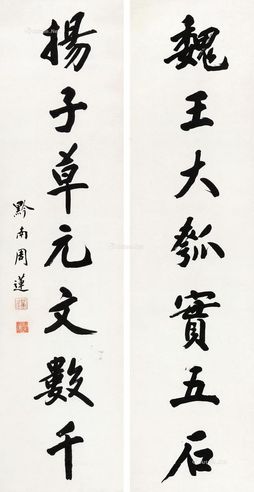 魏王大瓠實五石
揚子草元文數千
黔南周蓮